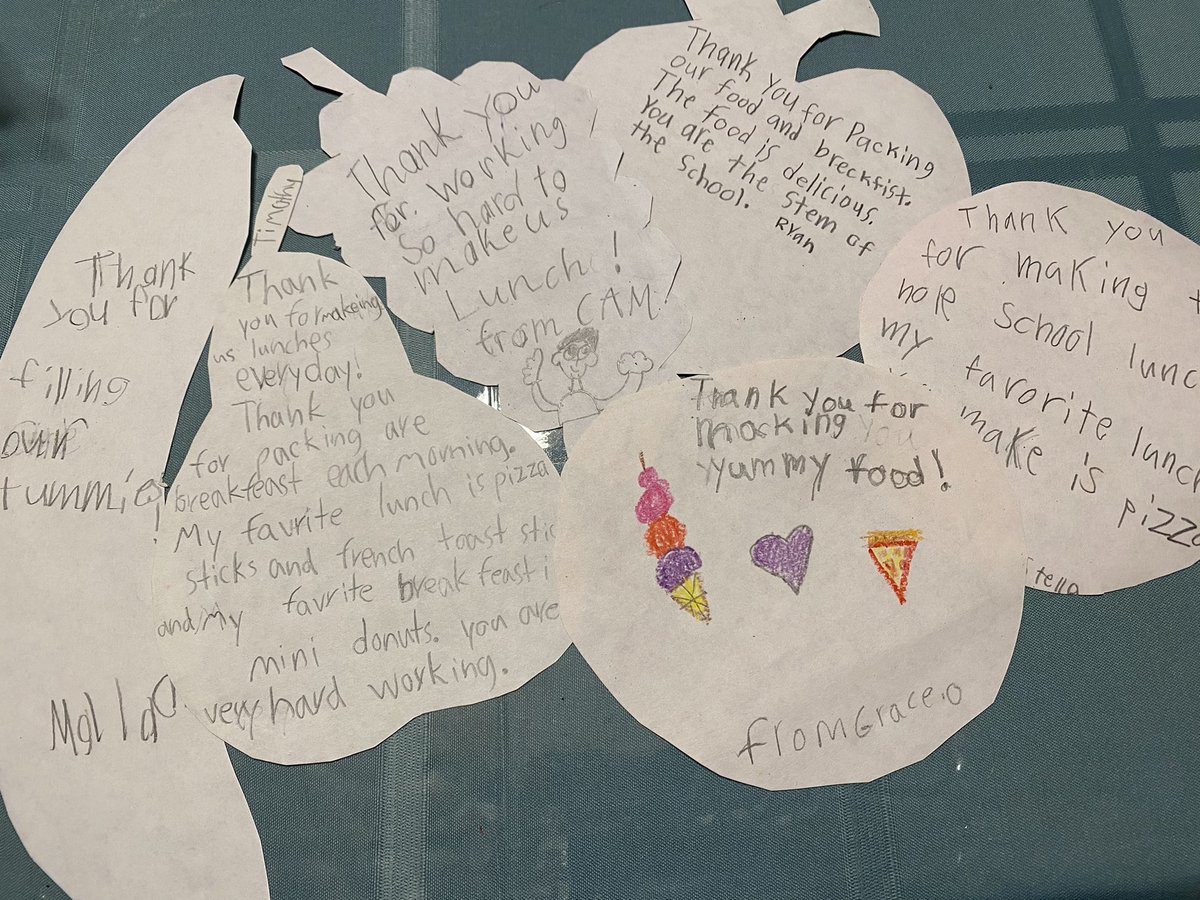 Thank
you for
filling
our
tummies
!
Timothy
Thank
you for makeing
us lunches
everyday!
Thank you
for packing are
breakfeast each morning.
My favrite lunch is pizza
sticks and french toast stic
and My favrite breakfeast i
mini donuts. you are
very hard working.
Thank you
for working
so hard to
make us
Lunch!
from CAM!
Thank you for Packing
our food and breckfist.
The food is delicious.
You are the stem of
the School.
Ryan
Thank you for
macking you
yummy food!
from Grace.O
Thank you
for making t
hole School lunc
my favorite lunch
make is
pizza
tella